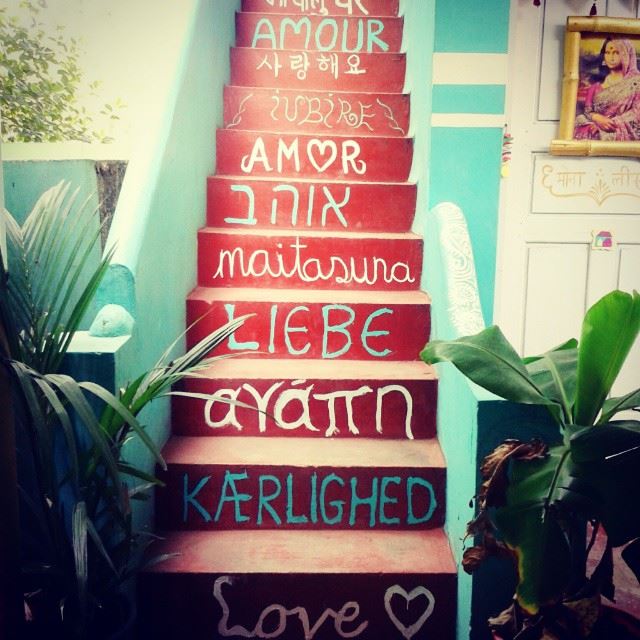 AMOUR
사랑해요
IUBIRE
AM♡R
אוהב
maitasuna
LIEBE
αγάπη
KÆRLIGHED
Love ♡